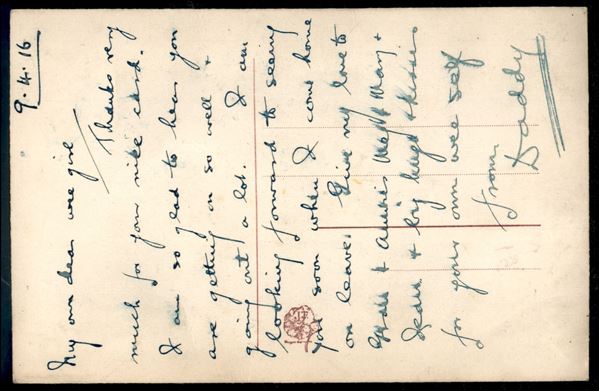 9.4.16
My own dear wee girl
Thanks very
much for your nike card.
I am so glad to hear you
are getting on so well &
going out a lot. I am
looking forward to seeing
you soon when I come home
on leave. Give my love to
& Aunties Meg & Mary &
& big hugs & kisses
for your own wee self
from
Daddy